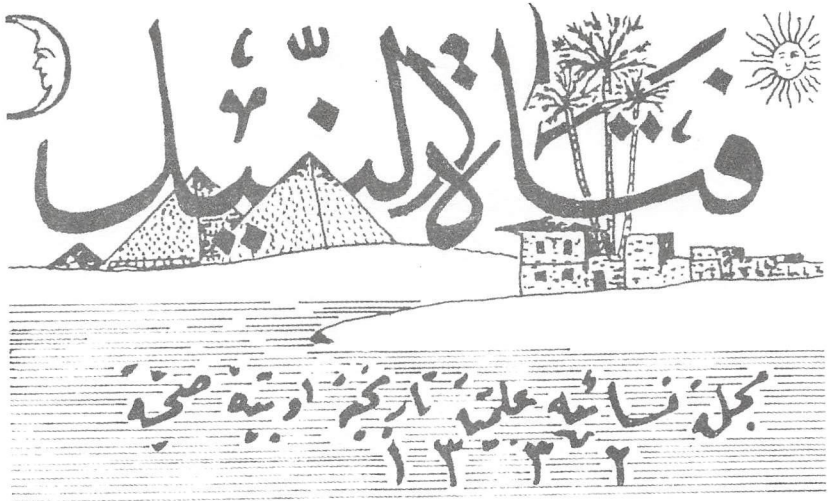 فتاة النيل
مجلة نسائية علمية تاريخية ادبية صحية
١٣٣٢